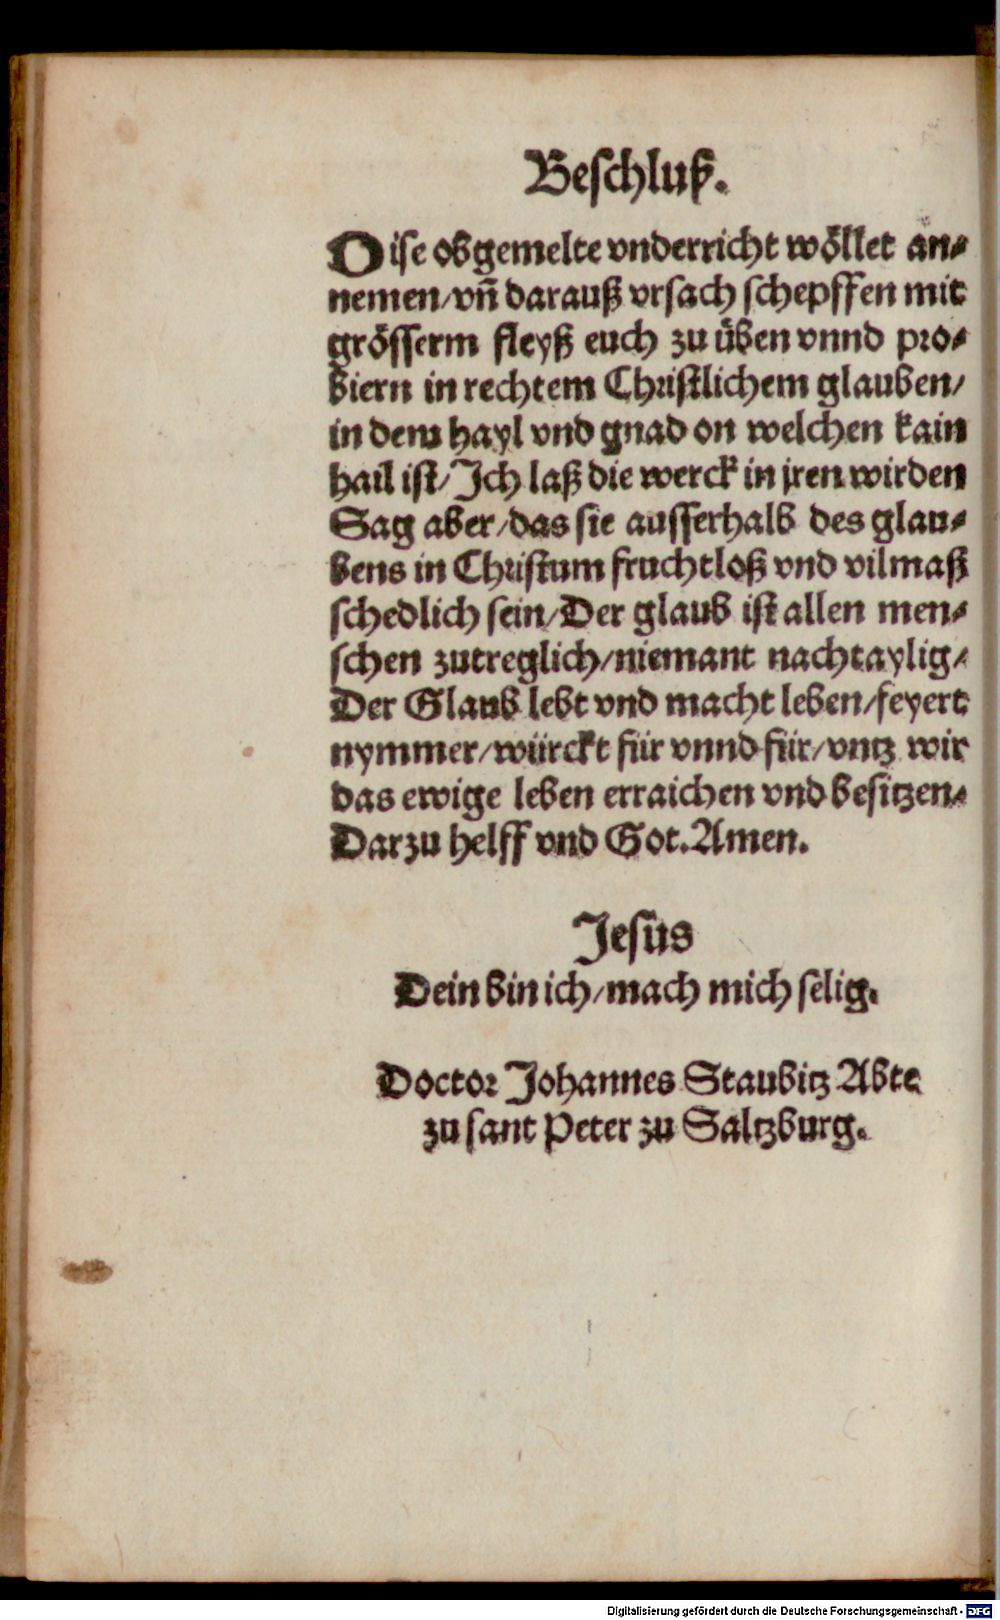 Beschluß.
Dise obgemelte vnderricht wöllet an⸗
nemen/vn̄ darauß vrsach schepffen mit
grösserm fleyß euch zu üben vnnd pro⸗
biern in rechtem Christlichem glauben/
in dem hayl vnd gnad on welchen kain
hail ist/Ich laß die werck in jren wirden
Sag aber/das sie ausserhalb des glau⸗
bens in Christum fruchtloß vnd vilmaß
schedlich sein/Der glaub ist allen men⸗
schen zutreglich/niemant nachtaylig/
Der Glaub lebt vnd macht leben/feyert
nymmer/würckt für vnnd für/vntz wir
das ewige leben erraichen vnd besitzen⸗
Darzu helff vnd Got.Amen.
Jesus
Dein bin ich/mach mich selig.
Doctor Johannes Staubitz Abte
zu sant Peter zu Saltzburg.
Digitalisierung gefördert durch die Deutsche Forschungsgemeinschaft - DFG